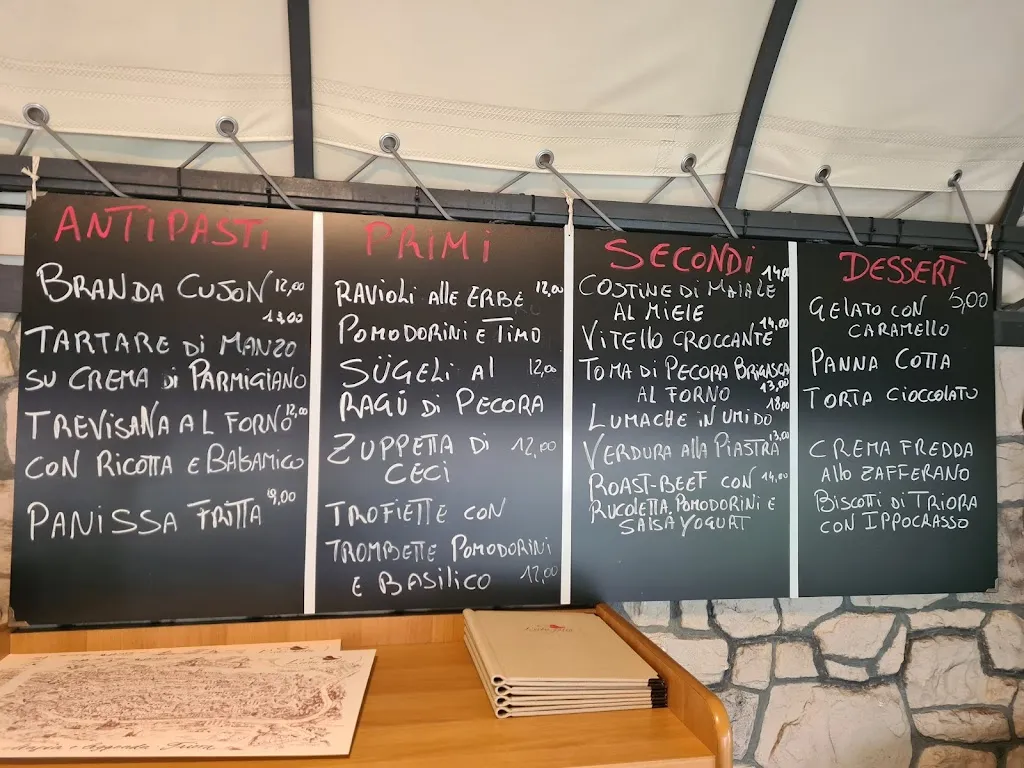 ANTIPASTI
BRANDA CUJON 12,00
13,00
TARTARE DI MANZO
SU CREMA di PARMIGIANO
TREVISANA AL FORNO 12,00
CON RICOTTA E BALSAMICO
PANISSA FRITTA 9,00
PRIMI
RAVIOLI Alle ERBE 12,00
POMODORINI E TIMO
SÜGELI Al 12,00
RAGÚ DI PECORA
ZUPPETTA DI 12,00
CECI
TROFIETTE CON
TROMBETTE POMODORINI
E BASILICO 12,00
SECONDI
14,00
COSTINE DI MAIALE
AL MIELE
14,00
VITELLO CROCCANTE
TOMA DI PECORA BRIGASCA
AL FORNO 13,00
18,00
LUMACHE IN UMIDO
VERDURA Alla PIASTRA 13,00
ROAST-BEEF CON 14,00
RUCOLETTA, POMODORINI E
SALSA YOGURT
DESSERT
5,00
GELATO CON
CARAMELLO
PANNA COTTA
TORTA CIOCCOLATO
CREMA FREDDA
Allo ZAFFERANO
BISCOTTI DI TRIORA
CON IPPOCRASSO